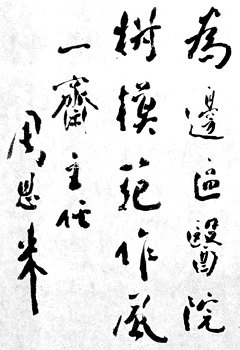 為邊區醫院
樹模範作風
一齋主任
周恩来